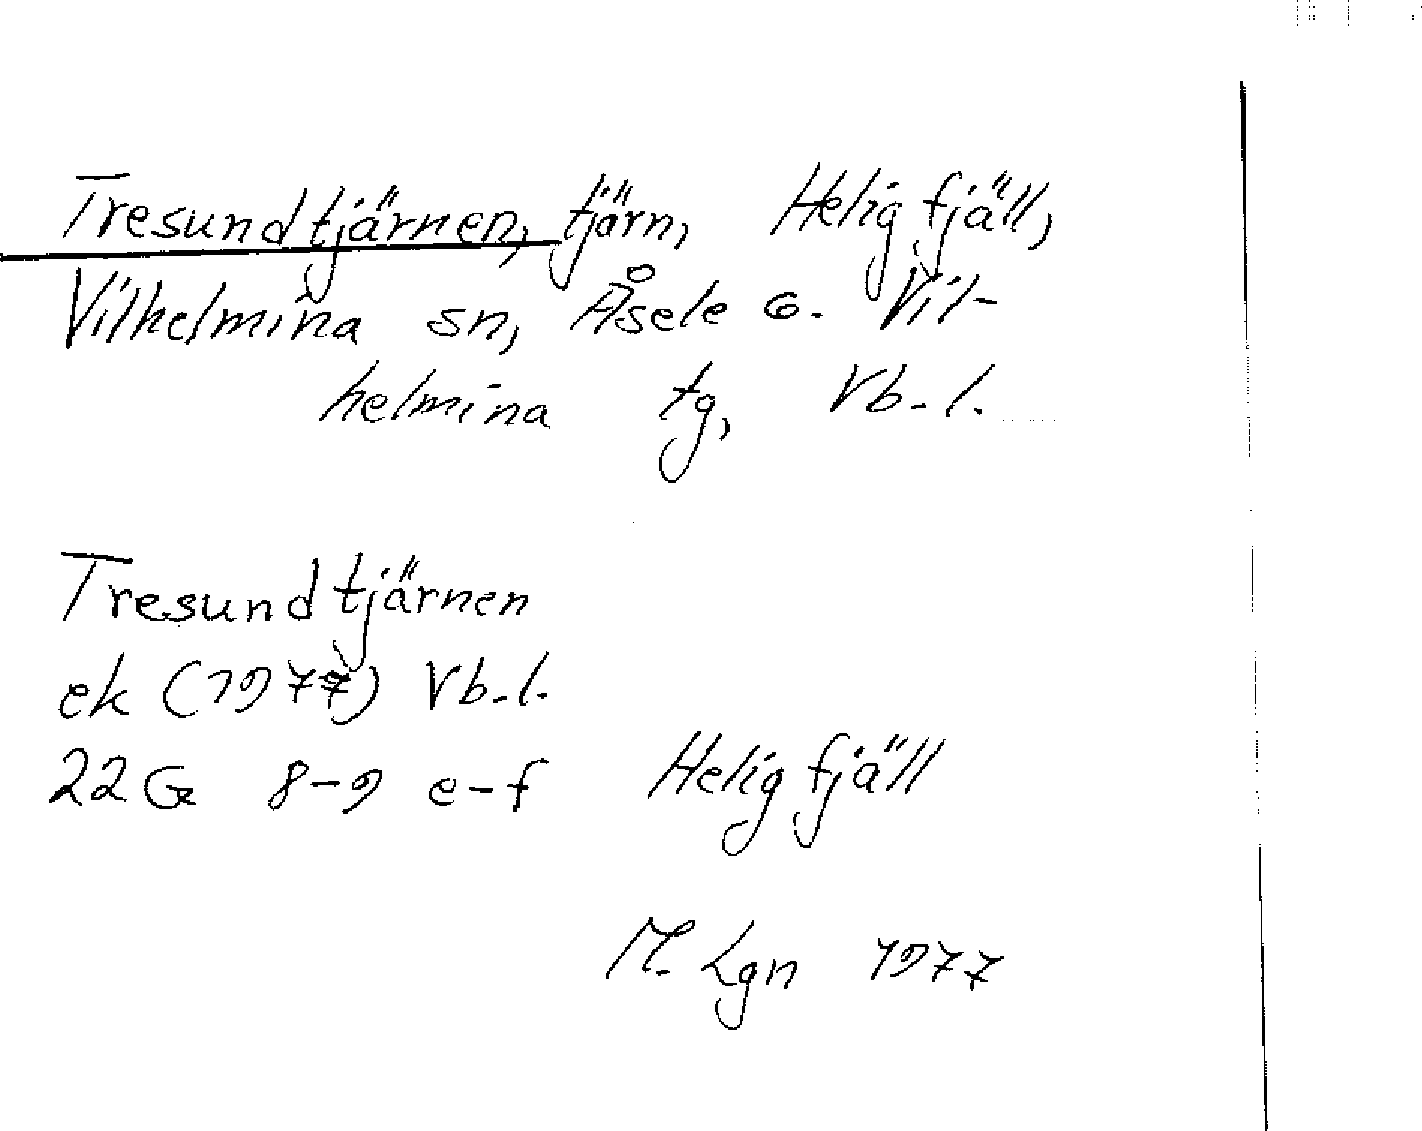 Tresundtjärnen, tjärn, Heligfjäll,
Vilhelmina sn, Åsele o. Vil-
helmina tg, Vb-l.
Tresundtjärnen
ek (1977) Vb-l.
22G 8-9 e-f Heligfjäll
M. Lgn 1977